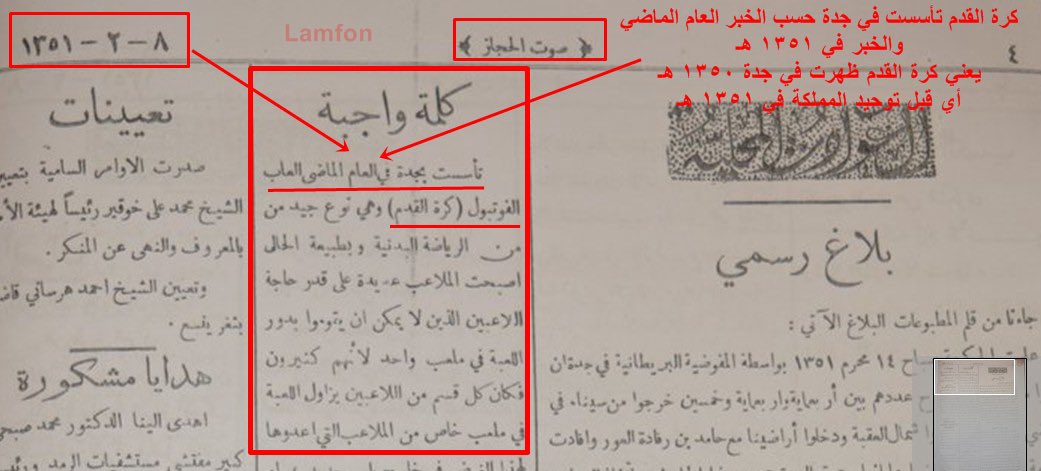 ٨ – ٢ – ١٣٥١
Lamfon
﴿ صوت الحجاز ﴾
٤
كرة القدم تأسست في جدة حسب الخبر العام الماضي
والخبر في ١٣٥١ هـ
يعني كرة القدم ظهرت في جدة ١٣٥٠ هـ
أي قبل توحيد المملكة في ١٣٥١ هـ
بلاغ رسمي
جاءنا من قلم المطبوعات البلاغ الآتي :
صباح ١٤ محرم ١٣٥١ بواسطة المفوضية البريطانية في جدة ان
عددهم بين أر بعماية وار بعماية وخمسين خرجوا من سيناء في
شمال العقبة ودخلوا أراضينا مع حامد بن رفادة العور وافادت
كلمة واجبة
تأسست بجدة في العام الماضى العاب
الفوتبول (كرة القدم) وهي نوع جيد من
من الرياضة البدنية و بطبيعة الحال
اصبحت الملاعب عديدة على قدر حاجة
اللاعبين الذين لا يمكن ان يقوموا بدور
اللعبة في ملعب واحد لأنهم كثيرون
فكان كل قسم من اللاعبين يزاول اللعبة
في ملعب خاص من الملاعب التي اعدوها
تعيينات
صدرت الاوامر السامية بتعيين
الشيخ محمد على خوقير رئيساً لهيئة
بالمعروف والنهى عن المنكر .
وتعيين الشيخ احمد هرساني
بثغر ينبع .
هدايا مشكورة
اهدى الينا الدكتور محمد
كبير مفتشي مستشفيات الرمد